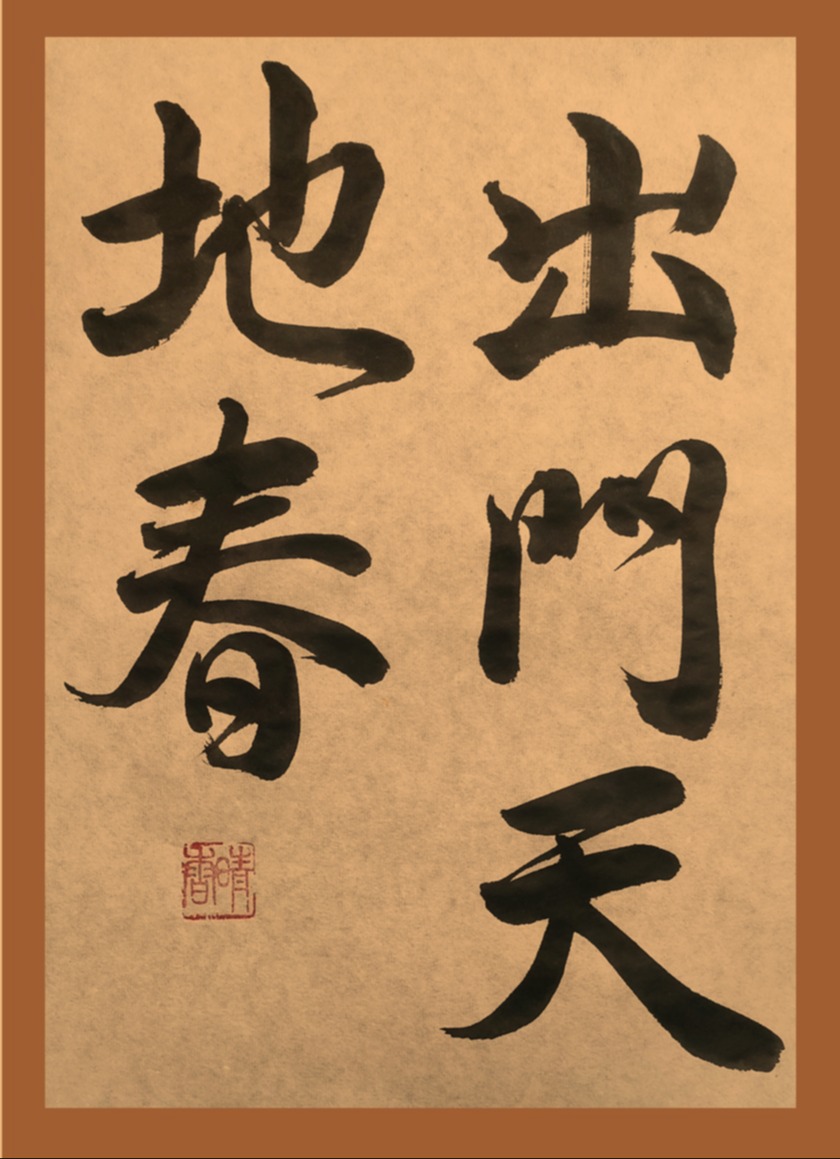 出門天
地春
晴香